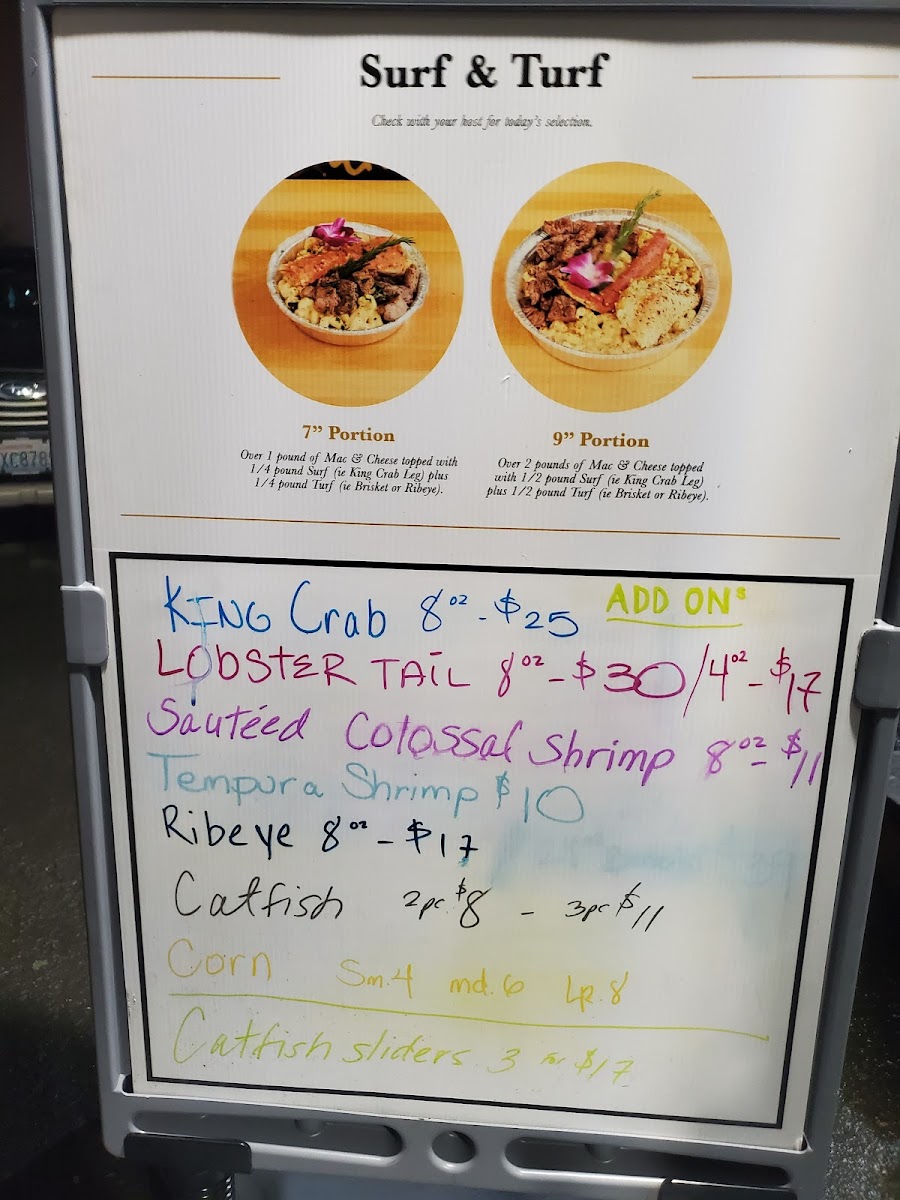 Surf & Turf
Check with your host for today's selection.
7" Portion
Over 1 pound of Mac & Cheese topped with
1/4 pound Surf (ie King Crab Leg) plus
1/4 pound Turf (ie Brisket or Ribeye).
9" Portion
Over 2 pounds of Mac & Cheese topped
with 1/2 pound Surf (ie King Crab Leg)
plus 1/2 pound Turf (ie Brisket or Ribeye).
ADD ONs
KING Crab 8oz - $25
LOBSTER TAIL 8oz - $30/4oz - $17
Sautéed Colossal Shrimp 8oz - $11
Tempura Shrimp $10
Ribeye 8oz - $17
Catfish 2pc $8 - 3pc $11
Corn Sm.4 md.6 Lg.8
Catfish sliders 3 for $17